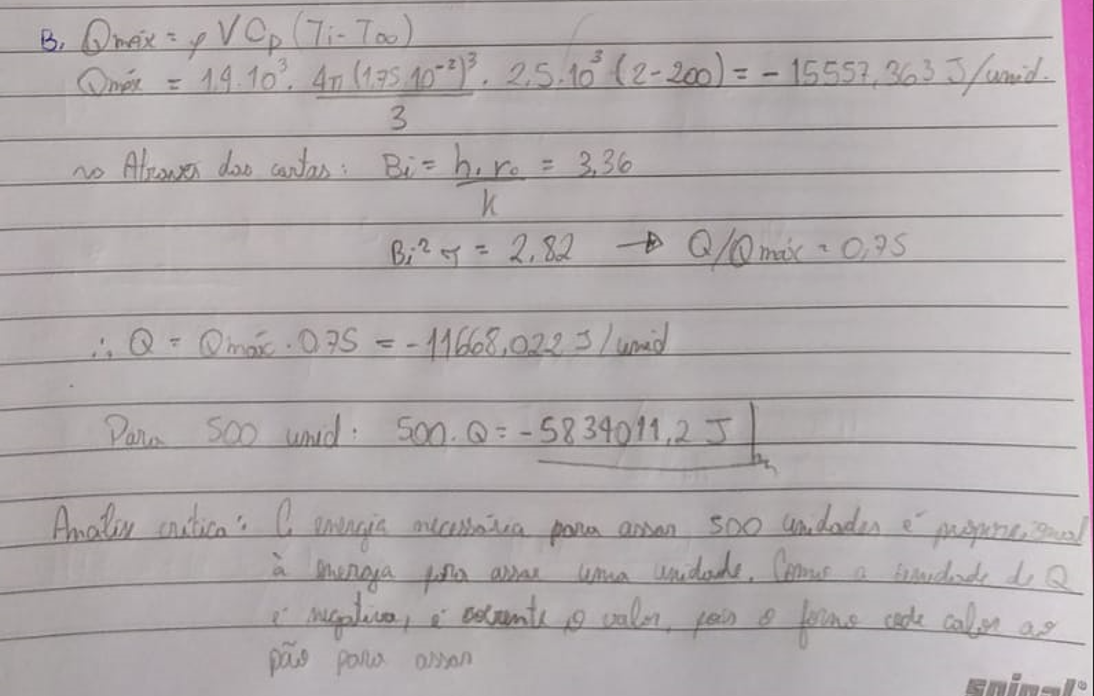 B. Qmáx = ρVCp(Ti-T∞)
Qmáx = 1,4.10³. 4π(1,75.10⁻²)³. 2,5.10³(2-200) = -15557,363 J/unid.
3
Através das cartas: Bi = h.r₀ = 3,36
k
Bi²τ = 2,82 → Q/Qmáx = 0,75
∴ Q = Qmáx.0,75 = -11668,022 J/unid
Para 500 unid: 500.Q = -5834011,2 J
Analise critica: A energia necessária para assar 500 unidades é proporcional
à energia para assar uma unidade. Como a unidade de Q
é negativa, é o valor, pois o forno cede calor ao
pão para assar
spiral®